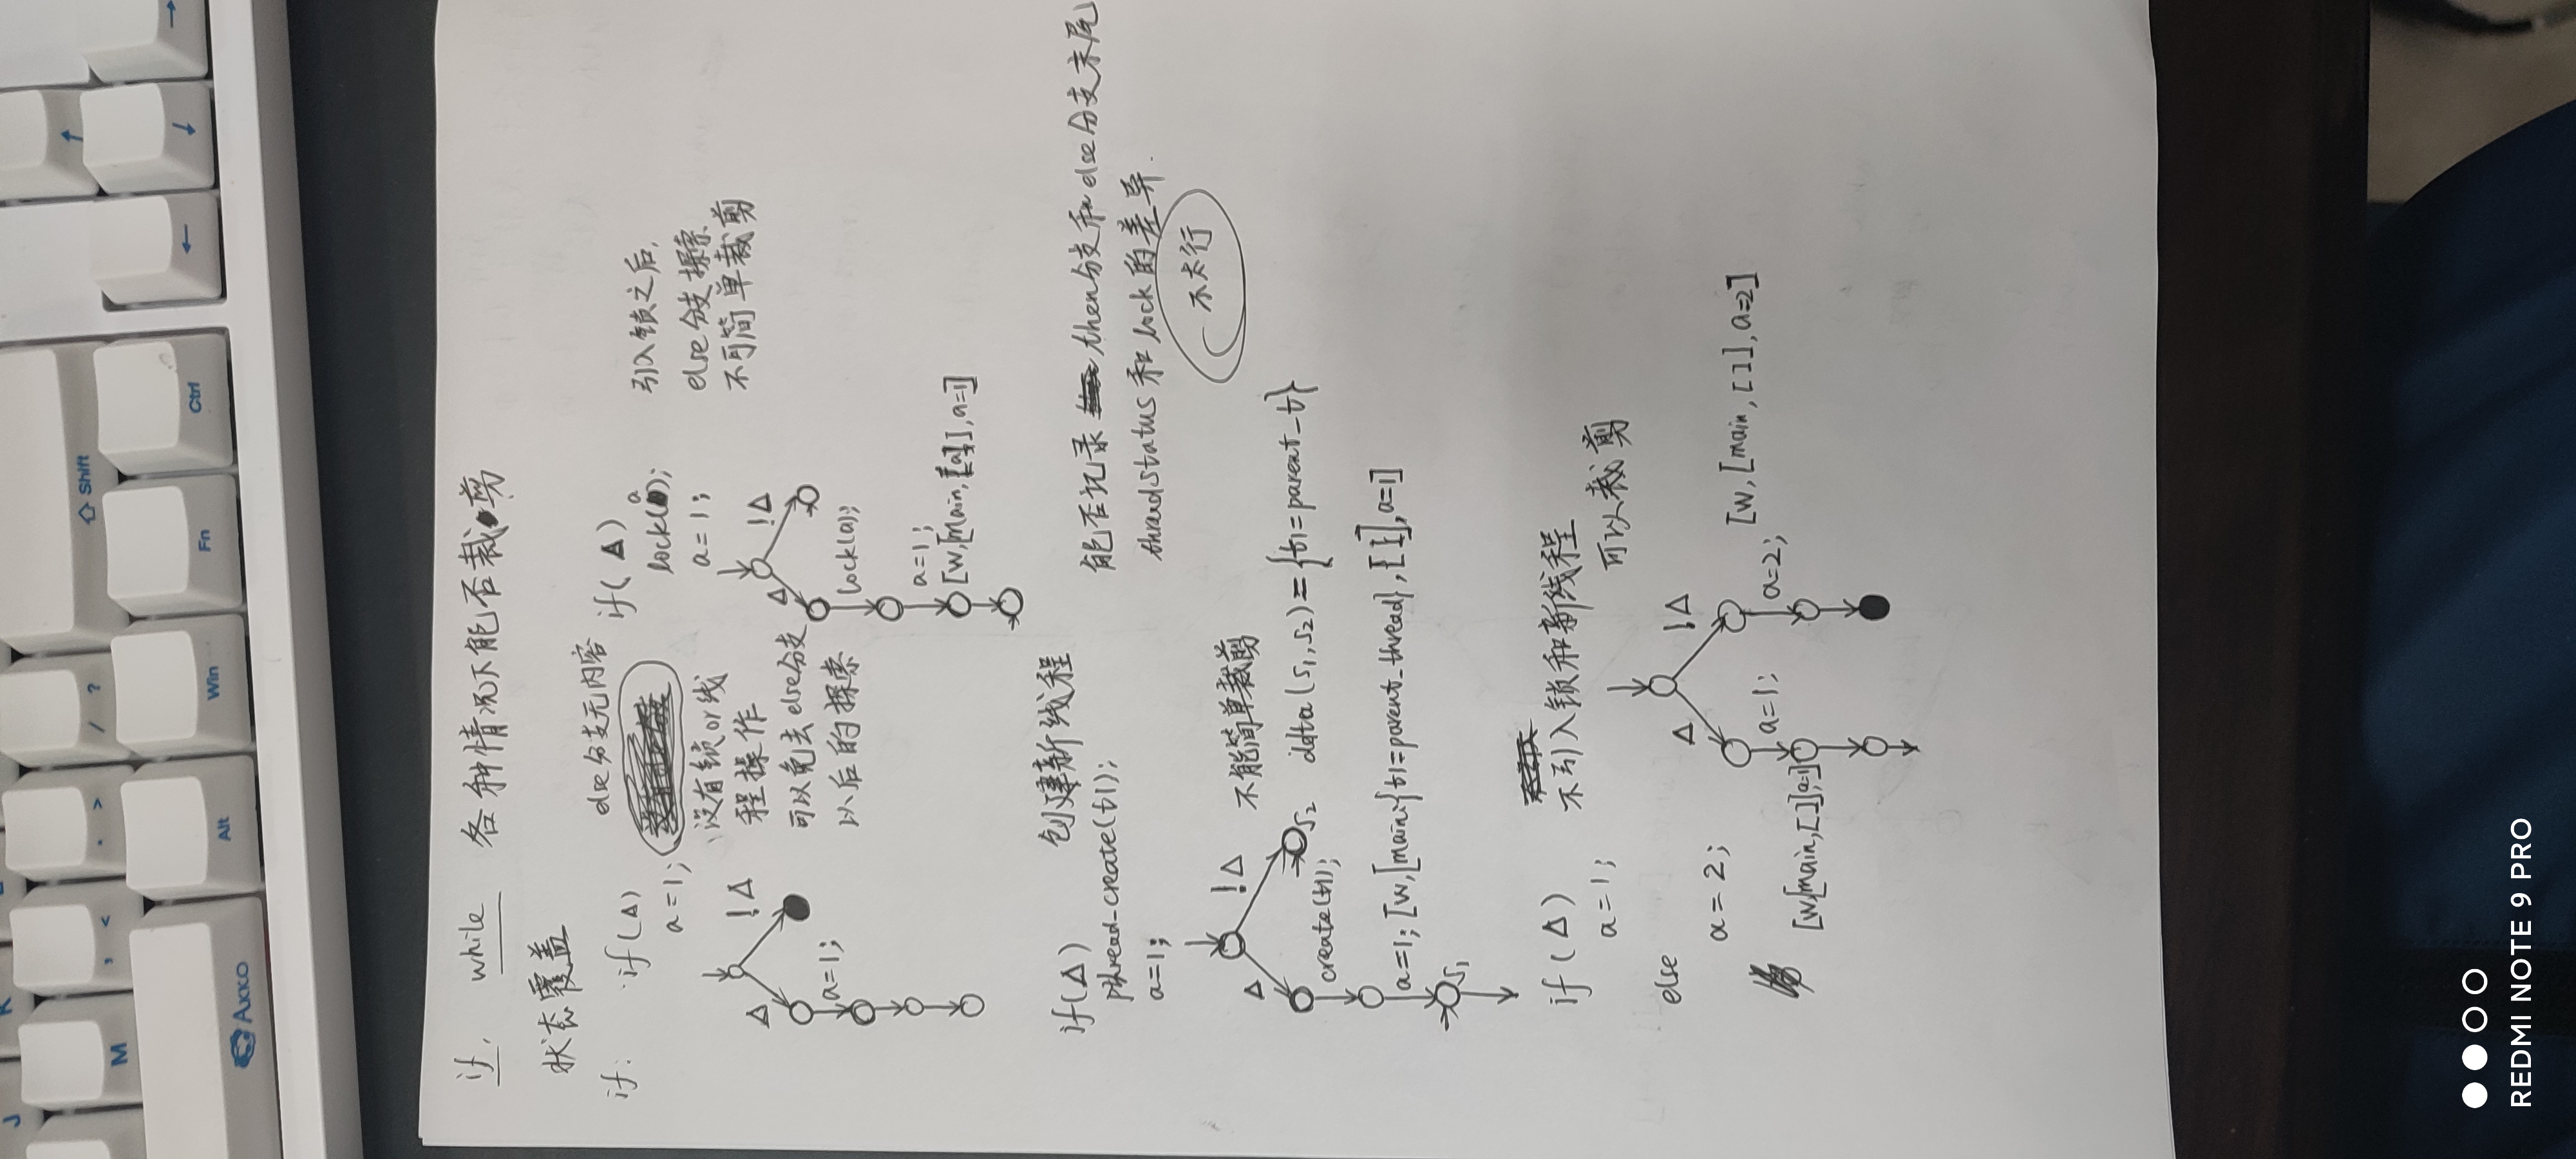 J K
M , < . > / ? Shift
AKKO Alt Win Fn Ctrl
if, while 各种情况下能否裁剪
状态覆盖
if:
if(Δ)
a=1;
else分支无内容
没有锁or线
程操作
可以免去else分支
以后的探索
Δ !Δ
a=1;
if(Δ)
lock(a);
a=1;
引入锁之后,
else分支探索
不可简单裁剪
Δ !Δ
lock(a);
a=1;
[w,[main,[a]],a=1]
if(Δ) 创建新线程
pthread_create(t1);
a=1;
能否记录 then分支和else分支末尾
threadstatus和lock的差异.
不太行
Δ !Δ 不能简单裁剪
S2 delta(S1,S2)={t1=parent_t}
create(t1);
a=1; [w,[main:{t1=parent_thread},[]],a=1]
S1
if(Δ) 不引入锁和新线程
a=1; 可以裁剪
else
a=2;
Δ !Δ
[w,[main,[]],a=2]
a=1; a=2;
[w,[main,[]],a=1]
REDMI NOTE 9 PRO